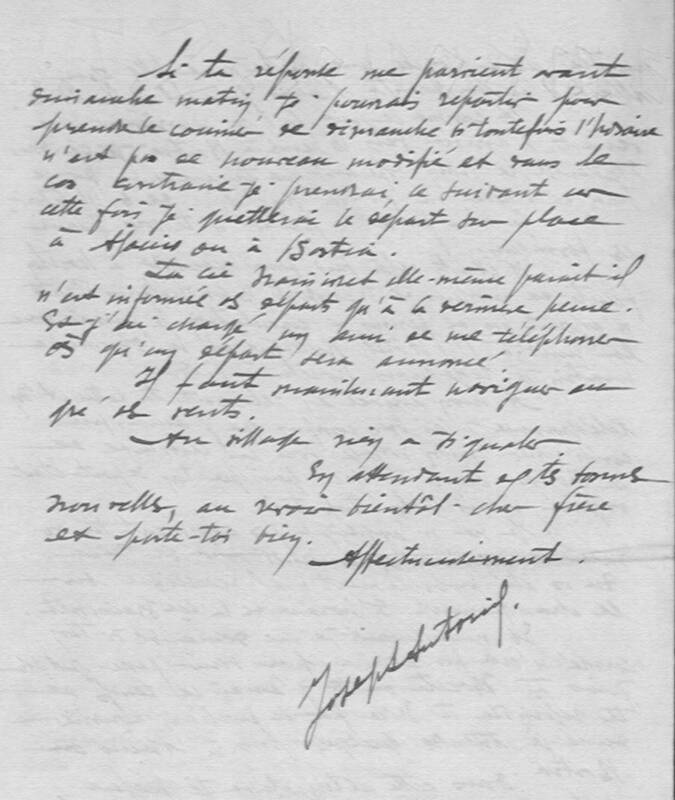 Si ta réponse me parvient avant
dimanche matin je pourrais repartir pour
prendre le courrier de dimanche si toutefois l'horaire
n'est pas de nouveau modifié et dans le
cas contraire je prendrai le suivant car
cette fois je guetterai le départ sur place
à Ajaccio ou à Bastia.
La Cie Fraissinet elle-même paraît il
n'est informée des départs qu'à la dernière heure.
Et j'ai chargé un ami de me téléphoner
dès qu'un départ sera annoncé
Il faut maintenant naviguer au
gré des vents.
Au village rien à signaler
En attendant de tes bonnes
nouvelles, au revoir bientôt cher frère
et porte-toi bien.
Affectueusement.
Joseph Antoine.